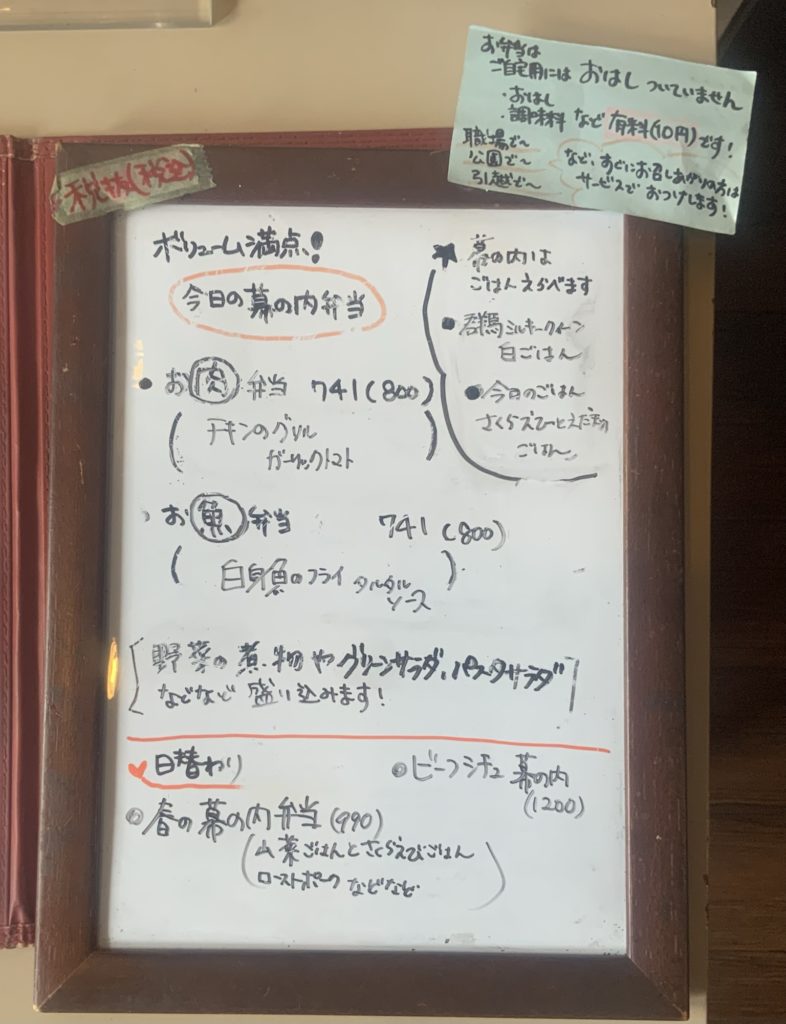 お弁当は
ご自宅用には おはし ついていません
・おはし
・調味料 など 有料(10円)です!
職場で〜
公園で〜
引越で〜
など、すぐにお召しあがりの方は
サービスで おつけします!
税抜(税込)
ボリューム満点!
今日の幕の内弁当
★ 幕の内は
ごはんえらべます
● 群馬ミルキークイーン
白ごはん
● 今日のごはん
さくらえびとえだ豆の
ごはん
● お肉弁当 741(800)
(チキンのグリル
ガーリックトマト)
・お魚弁当 741(800)
(白身魚のフライ タルタル
ソース)
[野菜の煮物やグリーンサラダ、パスタサラダ
などなど 盛り込みます!]
♥ 日替わり
◎ビーフシチュー 幕の内
(1200)
◎春の幕の内弁当(990)
(山菜ごはんとさくらえびごはん
ローストポーク などなど)